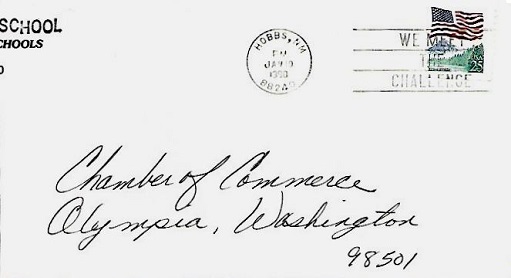 SCHOOL
CHOOLS
HOBBS, NM
PM
1990
88240
WE MEET
THE
CHALLENGE
25
Chamber of Commerce
Olympia, Washington
98501